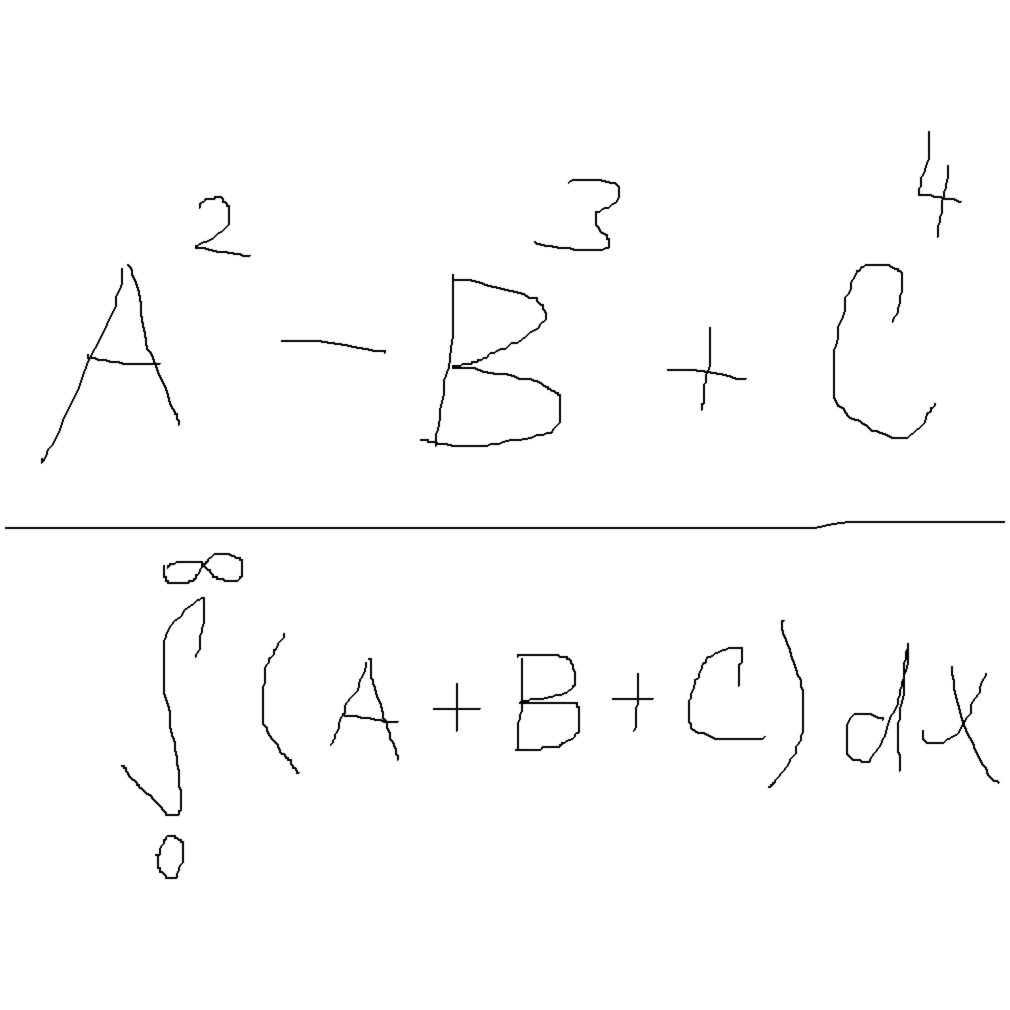 A² - B³ + C⁴
∫₀^∞ (A + B + C) dx